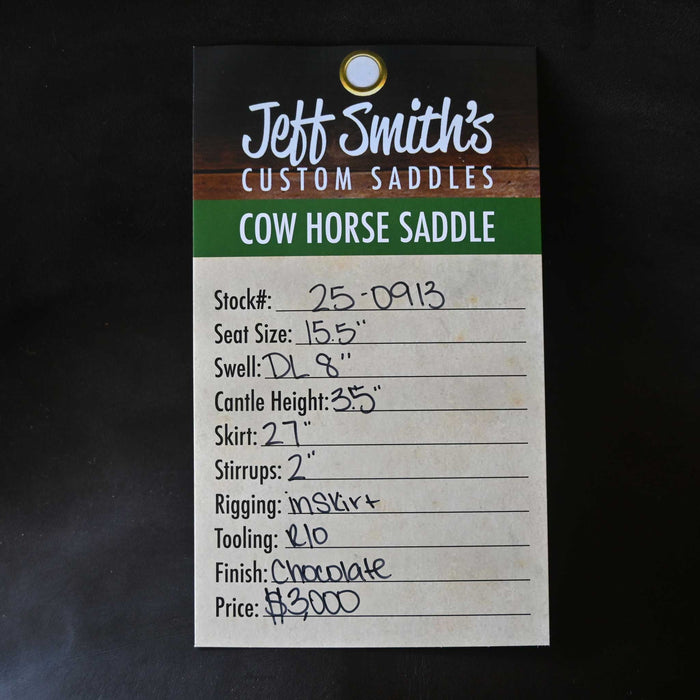 Jeff Smith's
CUSTOM SADDLES
COW HORSE SADDLE
Stock#: 25-0913
Seat Size: 15.5"
Swell: DL 8"
Cantle Height: 3.5"
Skirt: 27"
Stirrups: 2"
Rigging: inskirt
Tooling: RIO
Finish: Chocolate
Price: $3,000